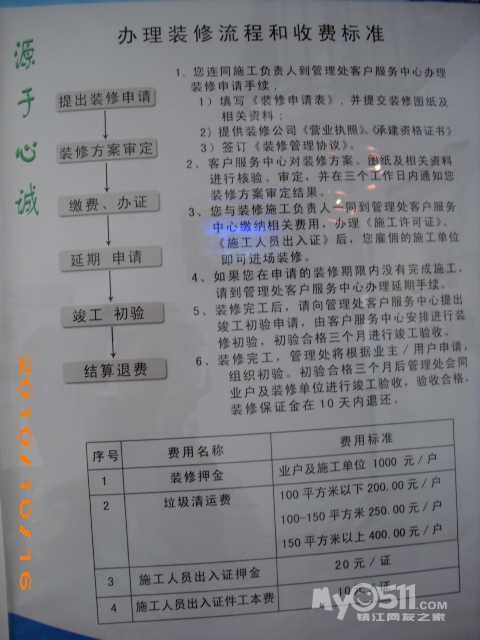 办理装修流程和收费标准
源于心诚
提出装修申请
装修方案审定
缴费、办证
延期 申请
竣工 初验
结算退费
1、您连同施工负责人到管理处客户服务中心办理
装修申请手续,
1）填写《装修申请表》,并提交装修图纸及
相关资料;
2）提供装修公司《营业执照》、《承建资格证书》
3）签订《装修管理协议》。
2、客户服务中心对装修方案、图纸及相关资料
进行核验、审定,并在三个工作日内通知您
装修方案审定结果。
3、您与装修施工负责人一同到管理处客户服务
中心缴纳相关费用,办理《施工许可证》、
《施工人员出入证》后,您雇佣的施工单位
即可进场装修。
4、如果您在申请的装修期限内没有完成施工,
请到管理处客户服务中心办理延期手续。
5、装修完工后,请向管理处客户服务中心提出
竣工初验申请,由客户服务中心安排进行装
修初验,初验合格三个月进行竣工验收。
6、装修完工,管理处将根据业主/用户申请,
组织初验。初验合格三个月后管理处会同
业户及装修单位进行竣工验收,验收合格,
装修保证金在10天内退还。
序号 费用名称 费用标准
1 装修押金 业户及施工单位 1000 元/户
2 垃圾清运费 100平方米以下200.00元/户
100-150平方米250.00元/户
150平方米以上400.00元/户
3 施工人员出入证押金 20元/证
4 施工人员出入证件工本费 10元/证
2010/10/16
My0511.com
镇江网友之家